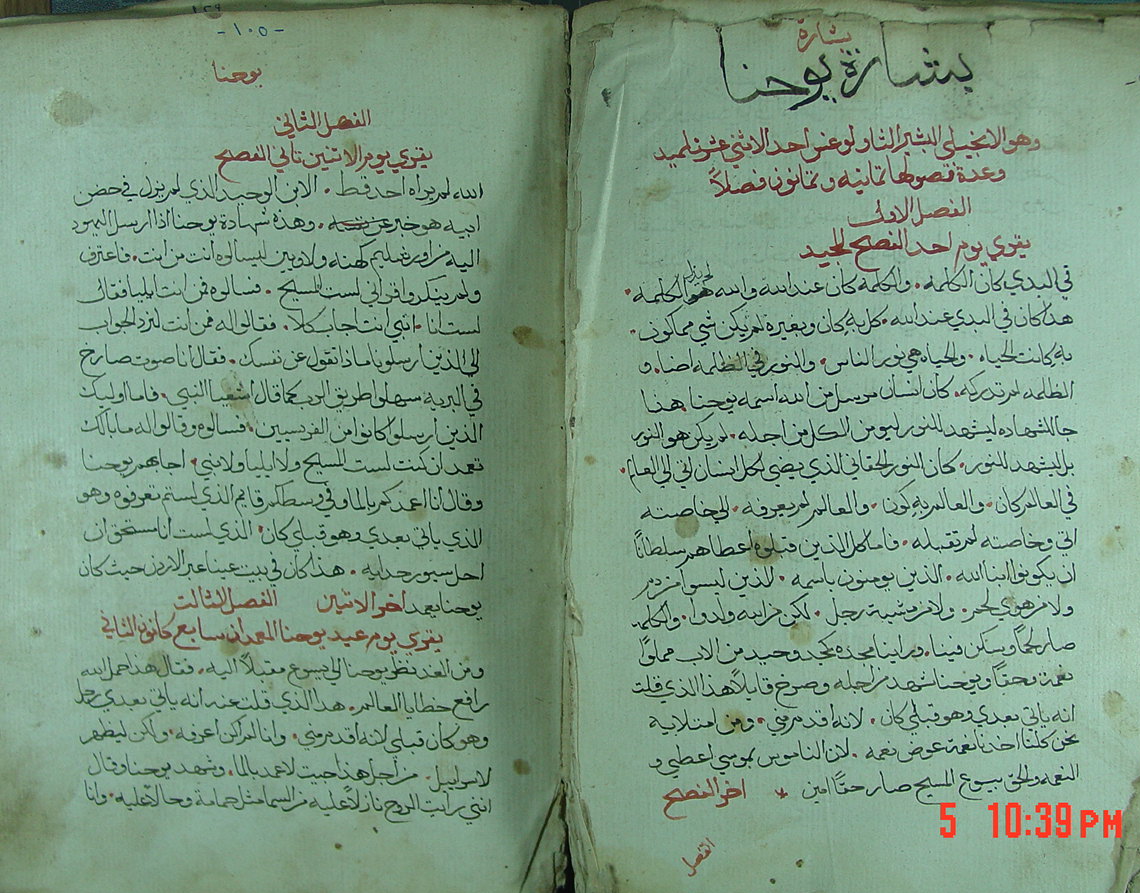 بشارة
بشارة يوحنا
وهو الانجيلي البشير الثاولوغس احد الاثني عشر تلميد
وعدة فصولها تمانيه وتمانون فصلاً
الفصل الاول
يقري يوم احد الفصح المجيد
في البدي كان الكلمه. والكلمه كان عند الله والله هو الكلمه.
هذا كان في البدي عند الله. كل به كان وبغيره لم يكن شي مما كون.
به كانت الحياه. والحياه هي نور الناس. والنور في الظلمه اضا. و
الظلمه لم تدركه. كان انسان مرسل من الله اسمه يوحنا. هذا
جا للشهاده ليشهد للنور ليومن الكل من اجله. لم يكن هو النور
بل ليشهد للنور. كان النور الحقاني الذي يضي لكل انسان اتي الي العالم.
في العالم كان. والعالم به كون. والعالم لم يعرفه. الي خاصته
اتي وخاصته لم تقبله. فاما كل الذين قبلوه اعطاهم سلطاناً
ان يكونوا ابنا الله. الذين يومنون باسمه. الذين ليسوا من دم
ولا من هوي لحم. ولا من مشية رجل. لكن من الله ولدوا. والكلمه
صار لحماً وسكن فينا. وراينا مجده كمجد وحيد من الاب مملواً
نعمة وحقاً ويوحنا شهد من اجله وصرخ قايلاً هذا الذي قلت
انه ياتي بعدي وهو قبلي كان. لانه اقدم مني. ومن امتلايه
نحن كلنا اخدنا نعمة عوض نعمه. لان الناموس بموسي اعطي و
النعمه والحق بيسوع المسيح صار حقاً امين * اخر الفصح
الفصل
-١٠٥-
يوحنا
الفصل الثاني
يقري يوم الاتنين تاني الفصح
الله لم يراه احد قط. الابن الوحيد الذي لم يزل في حضن
ابيه هو خبر عن. وهذه شهادة يوحنا اذ ارسل اليهود
اليه من اورشليم كهنه ولاويين ليسالوه انت من انت. فاعترف
ولم ينكر واقر اني لست المسيح. فسالوه فمن انت ايليا فقال
لست انا. النبي انت اجاب كلا. فقالوا له فمن انت لنرد الجواب
الي الذين ارسلونا ماذا تقول عن نفسك. فقال انا صوت صارخ
في البريه سهلوا طريق الرب كما قال اشعيا النبي. فاما اوليك
الذين ارسلوا كانوا من الفريسيين. فسالوه وقالوا له ما بالك
تعمد ان كنت لست المسيح ولا ايليا ولا نبي. اجابهم يوحنا
وقال انا اعمدكم بالما وفي وسطكم قايم الذي لستم تعرفوه وهو
الذي ياتي بعدي وهو قبلي كان. الذي لست انا مستحق ان
احل سيور حدايه. هذا كان في بيت عينا عبر الاردن حيث كان
يوحنا يعمد اخر الاتنين الفصل الثالت
يقري يوم عيد يوحنا المعمدان سابع كانون التاني
ومن الغد نظر يوحنا الي يسوع مقبلاً اليه. فقال هذا حمل الله
رافع خطايا العالم. هذا الذي قلت عنه انه ياتي بعدي رجل
وهو كان قبلي لانه اقدم مني. وانا لم اكن اعرفه. ولكن ليظهر
لاسراييل. من اجل هذا جيت لاعمد بالما. وشهد يوحنا وقال
انني رايت الروح نازلاً عليه من السما مثل حمامة وحالاً عليه. وانا
5 10:39 PM